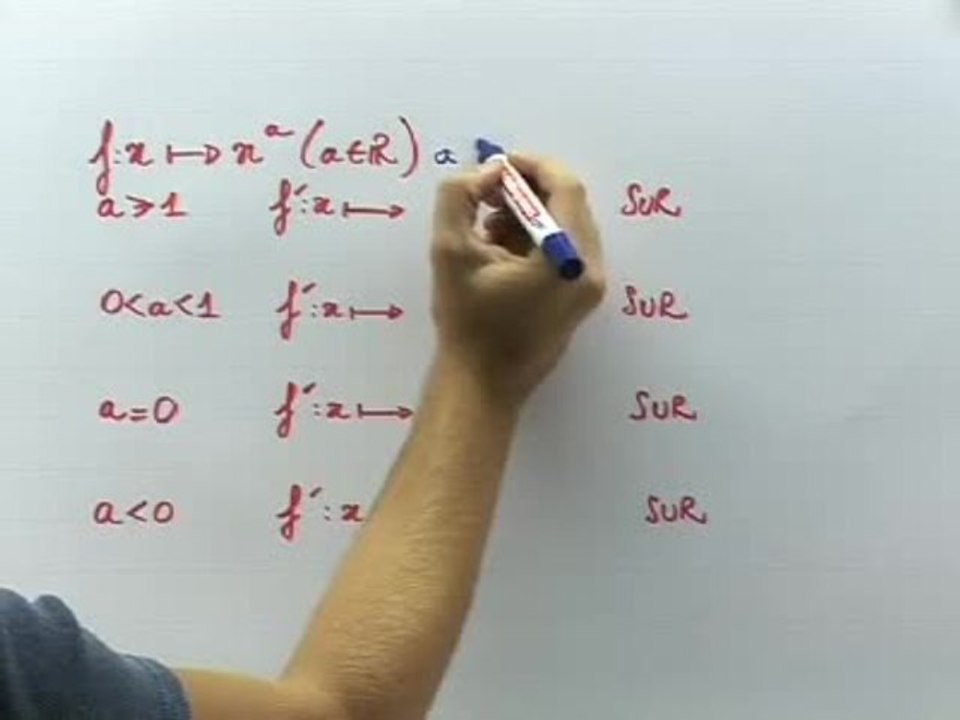 f:x ↦ x^a (a∈ℝ) a
a⩾1 f′:x ⟼ SUR
0<a<1 f′:x ⟼ SUR
a=0 f′:x ⟼ SUR
a<0 f′:x SUR